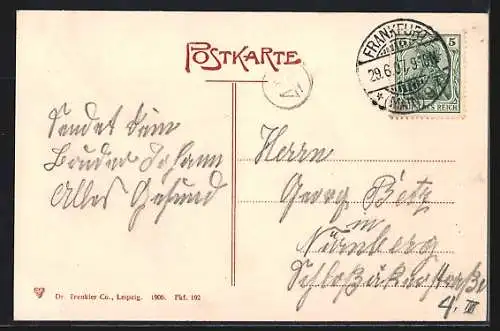 POSTKARTE
FRANKFURT
29.6.07. 9-10N
* (MAIN)
5
DEUTSCHES REICH
Sendet dein
Bruder Johann
Alles Gesund
Herrn
Georg Betz
in
Nürnberg
4. III
Dr. Trenkler Co., Leipzig. 1906. Pkf. 192